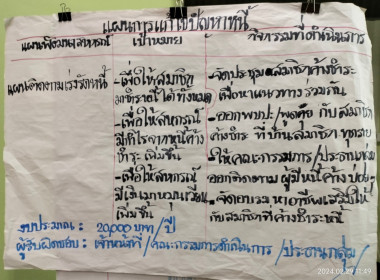 แผนการแก้ไขปัญหาหนี้
แผนพัฒนาสหกรณ์ เป้าหมาย กิจกรรมที่ดำเนินการ
แผนติดตามเร่งรัดหนี้ -เพื่อให้สมาชิก -จัดประชุมสมาชิกค้างชำระ
มาชำระหนี้ได้ทั้งหมด เพื่อหาแนวทางร่วมกัน
-เพื่อให้สหกรณ์ -ออกพบปะ/พูดคุย กับสมาชิก
มีกำไรจากหนี้ค้าง ค้างชำระ ที่บ้านสมาชิก ทุกราย
ชำระ เพิ่มขึ้น ให้คณะกรรมการ/ประธานกลุ่ม
-เพื่อให้สหกรณ์ ออกติดตาม ผู้มีหนี้ค้าง บ่อยๆ
มีเงินมาหมุนเวียน -จัดอบรม หาอาชีพเสริมให้
เพิ่มขึ้น กับสมาชิกที่ค้างชำระหนี้
งบประมาณ : 20,000 บาท/ปี
ผู้รับผิดชอบ : เจ้าหน้าที่/คณะกรรมการดำเนินการ/ประธานกลุ่ม/